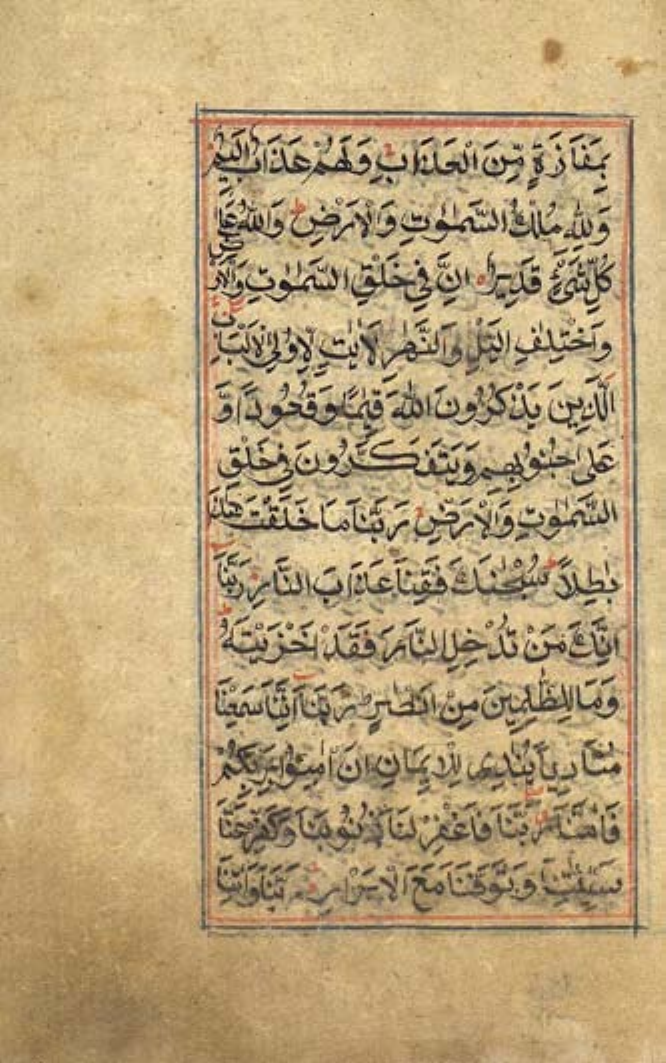 بِمَفَازَةٍ مِّنَ الْعَذَابِ وَلَهُمْ عَذَابٌ اَلِيْمٌ
وَلِلّٰهِ مُلْكُ السَّمٰوٰتِ وَالْاَرْضِ ط وَاللّٰهُ عَلٰى
كُلِّ شَیْءٍ قَدِيْرٌ اِنَّ فِیْ خَلْقِ السَّمٰوٰتِ وَالْاَرْضِ
وَاخْتِلَافِ الَّيْلِ وَالنَّهَارِ لَاٰيٰتٍ لِّاُولِی الْاَلْبَابِ
الَّذِيْنَ يَذْكُرُوْنَ اللّٰهَ قِيٰمًا وَّقُعُوْدًا وَّ
عَلٰى جُنُوْبِهِمْ وَيَتَفَكَّرُوْنَ فِیْ خَلْقِ
السَّمٰوٰتِ وَالْاَرْضِ رَبَّنَا مَا خَلَقْتَ هٰذَا
بٰطِلًا سُبْحٰنَكَ فَقِنَا عَذَابَ النَّارِ رَبَّنَا
اِنَّكَ مَنْ تُدْخِلِ النَّارَ فَقَدْ اَخْزَيْتَهُ
وَمَا لِلظّٰلِمِيْنَ مِنْ اَنْصَارٍ رَبَّنَا اِنَّنَا سَمِعْنَا
مُنَادِيًا يُّنَادِیْ لِلْاِيْمَانِ اَنْ اٰمِنُوْا بِرَبِّكُمْ
فَاٰمَنَّا رَبَّنَا فَاغْفِرْ لَنَا ذُنُوْبَنَا وَكَفِّرْ عَنَّا
سَيِّاٰتِنَا وَتَوَفَّنَا مَعَ الْاَبْرَارِ رَبَّنَا وَاٰتِنَا